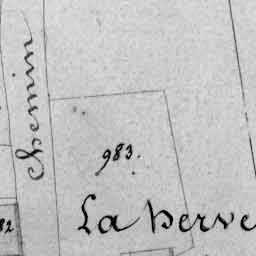 Chemin
983.
La herve